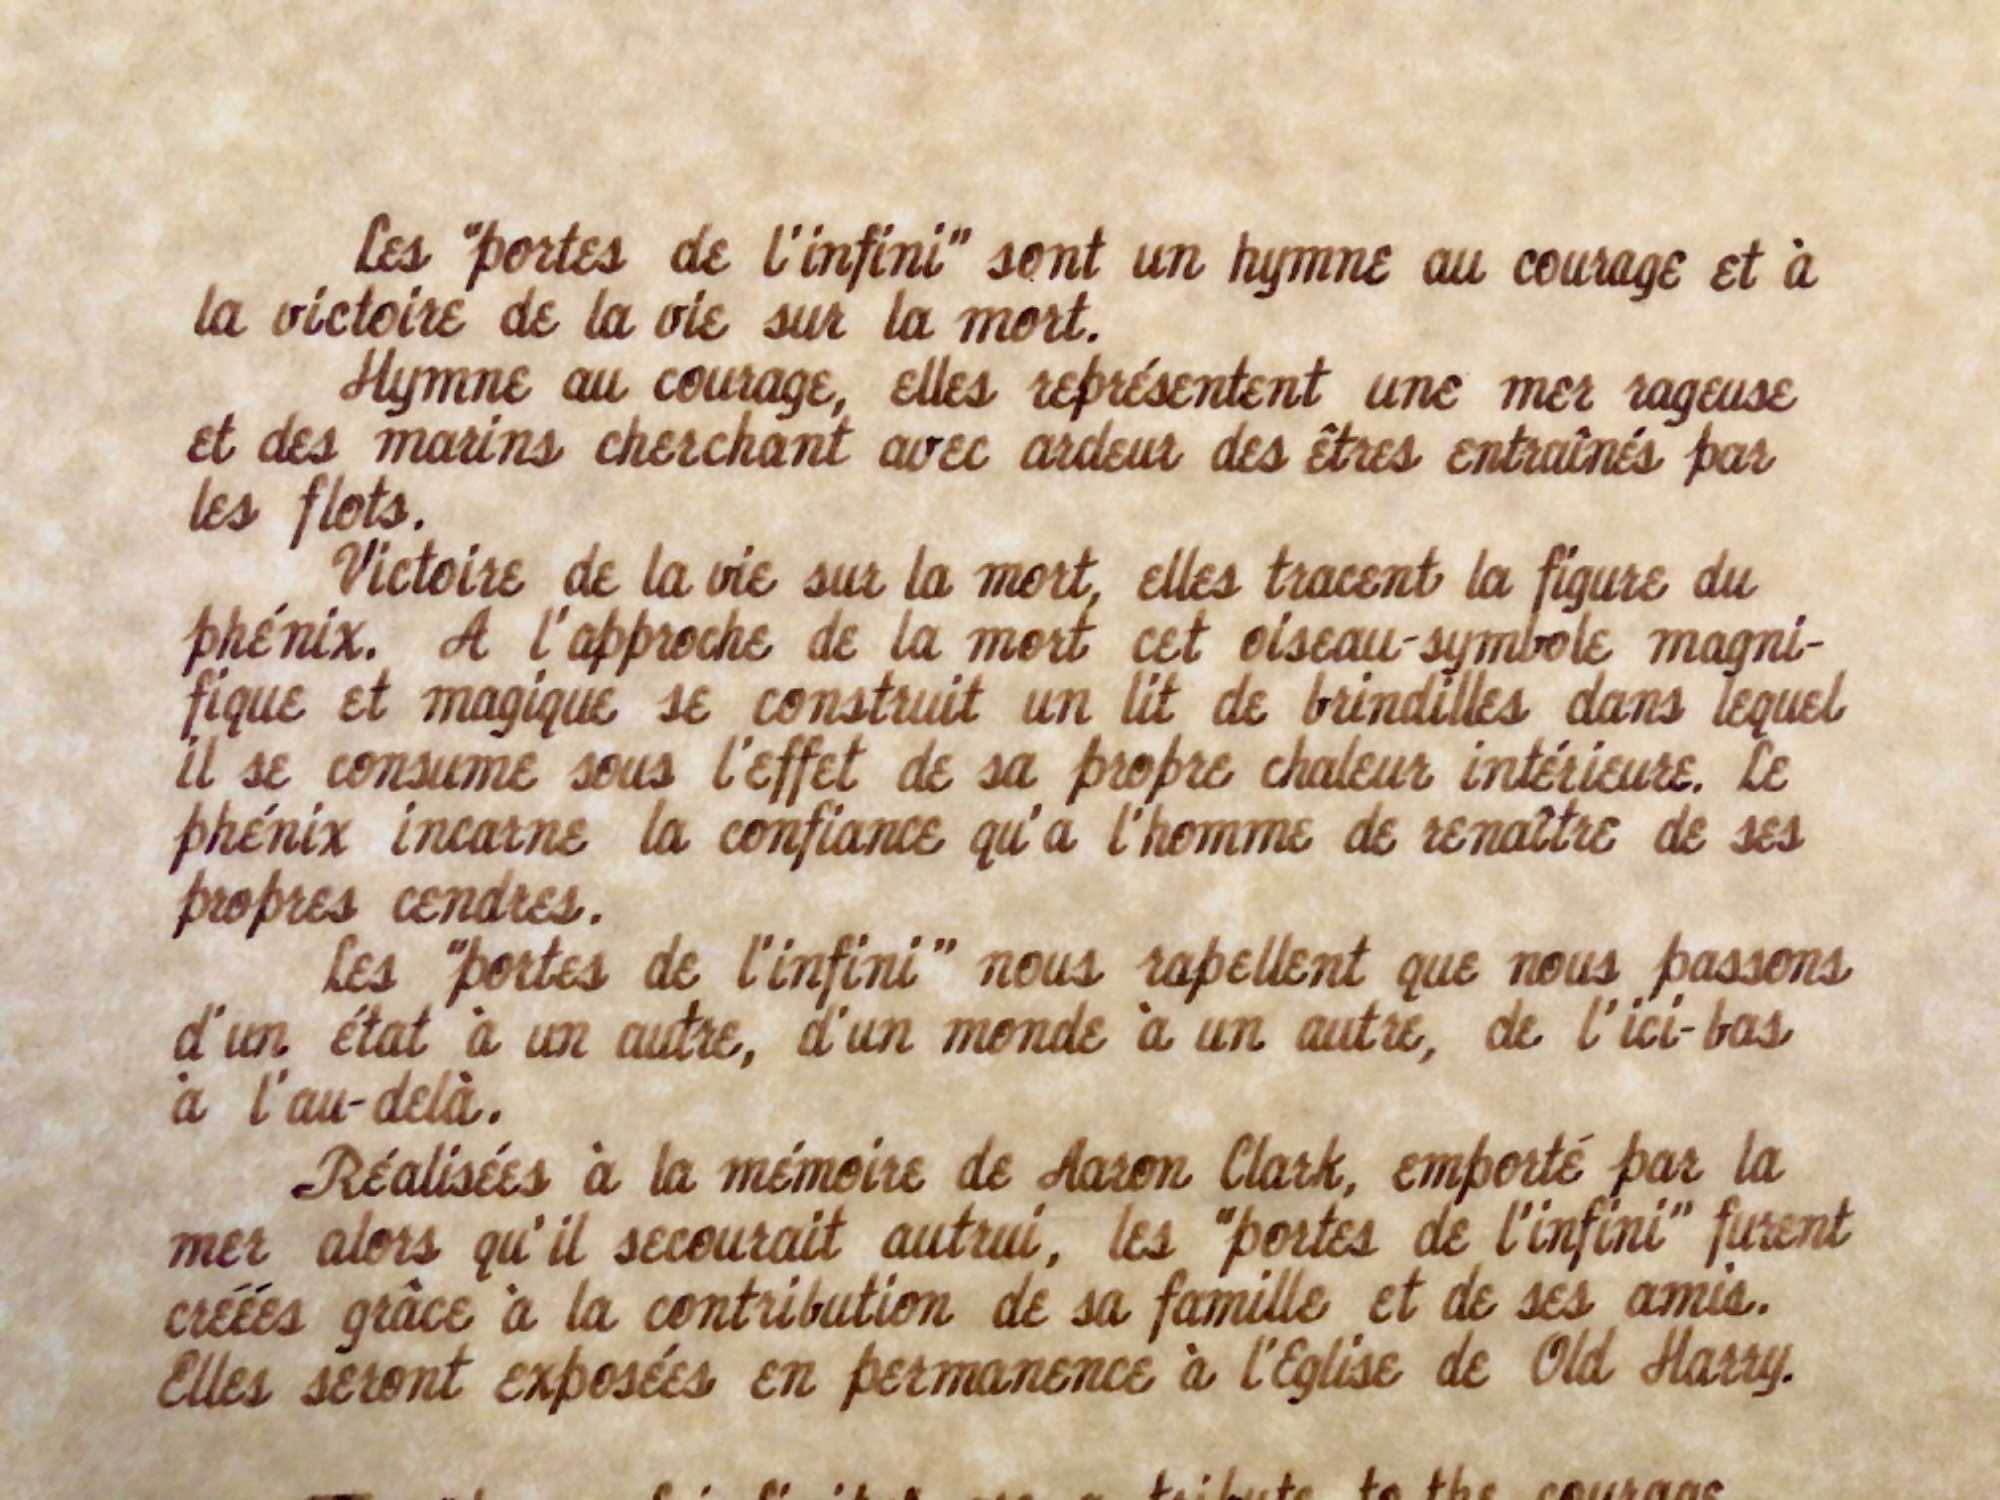 Les "portes de l'infini" sont un hymne au courage et à
la victoire de la vie sur la mort.
Hymne au courage, elles représentent une mer rageuse
et des marins cherchant avec ardeur des êtres entraînés par
les flots.
Victoire de la vie sur la mort, elles tracent la figure du
phénix. A l'approche de la mort cet oiseau-symbole magni-
fique et magique se construit un lit de brindilles dans lequel
il se consume sous l'effet de sa propre chaleur intérieure. Le
phénix incarne la confiance qu'a l'homme de renaître de ses
propres cendres.
Les "portes de l'infini" nous rapellent que nous passons
d'un état à un autre, d'un monde à un autre, de l'ici-bas
à l'au-delà.
Réalisées à la mémoire de Aaron Clark, emporté par la
mer alors qu'il secourait autrui, les "portes de l'infini" furent
créées grâce à la contribution de sa famille et de ses amis.
Elles seront exposées en permanence à l'Eglise de Old Harry.
a tribute to the courage